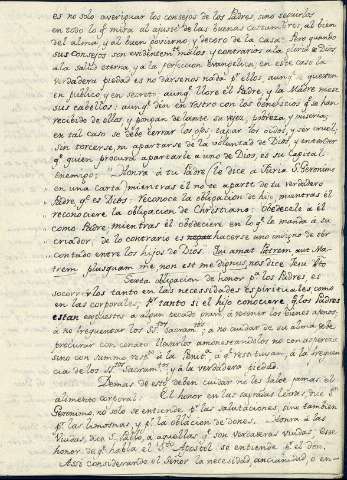 es no sólo averiguar los consejos de los Padres, sino seguirlos
en todo lo q.e mira al ajuste de las buenas costumbres, al bien
del alma, y al buen govierno y decoro de la casa. Pero quando
sus consejos son evidentem.te malos y contrarios a la gloria de Dios
a la salud eterna y a la perfeccion Evangelica; en este caso la
verdadera piedad es no darsenos nada p.r ellos, aunq.e
en publico y en secreto: aunq.e llore el Padre, y la Madre mese
sus cabellos: aunq.e den en rostro con los beneficios q.e se han
recibido de ellos y pongan delante su vejez, pobreza y miseria;
en tal caso se debe cerrar los ojos, tapiar los oidos, y ser cruel,
sin torcerse, ni apartarse de la voluntad de Dios, y entender
q.e quien procura apartarle a uno de Dios, es su Capital
Enemigo: Honra á tu Padre, le dice a Furia S. Geronimo
en una Carta, mientras él no te aparte de tu verdadero
Padre q.e es Dios: reconoce la obligacion de hijo, mientras él
reconociere la obligacion de Christiano: Obedecele á él
como Padre, mientras él obedeciere en lo q.e le manda á su
criador; de lo contrario es hacerse uno indigno de ser
contado entre los hijos de Dios. Qui amat Patrem aut Ma-
trem plusquam me, non est me dignus, nos dice Jesu Xto
Tercera obligacion de honor p.a los Padres es
socorrerlos tanto en las necesidades espirituales como
en las corporales; p.r tanto si el hijo conociere, q.e los Padres
estan expuestos á algun pecado grave, á perder los bienes agenos,
á no frequentar los SS.tos Sacram.tos y á no cuidar de su alma, debe
procurar con conato llevarlos amonestandolos no con aspereza
sino con summo resp.to á la Penit.a á q.e restituyan, á la frequen-
cia de los SS.tos Sacram.tos, y á la verdadera piedad.
Demas de esto deben cuidar no les falte jamas el
alimento corporal: El honor en las sagradas letras, dice S.n
Geronimo, no solo se entiende p.r las salutaciones, sino tambien
p.r las limosnas, y p.r la oblacion de dones. Honra á las
Viudas, dice S. Pablo, á aquellas q.e son verdaderas viudas, ese
honor de q.e habla el S.to Apostol se entiende p.r el don.
Assi considerando el Señor la necesidad, ancianidad, ó en-